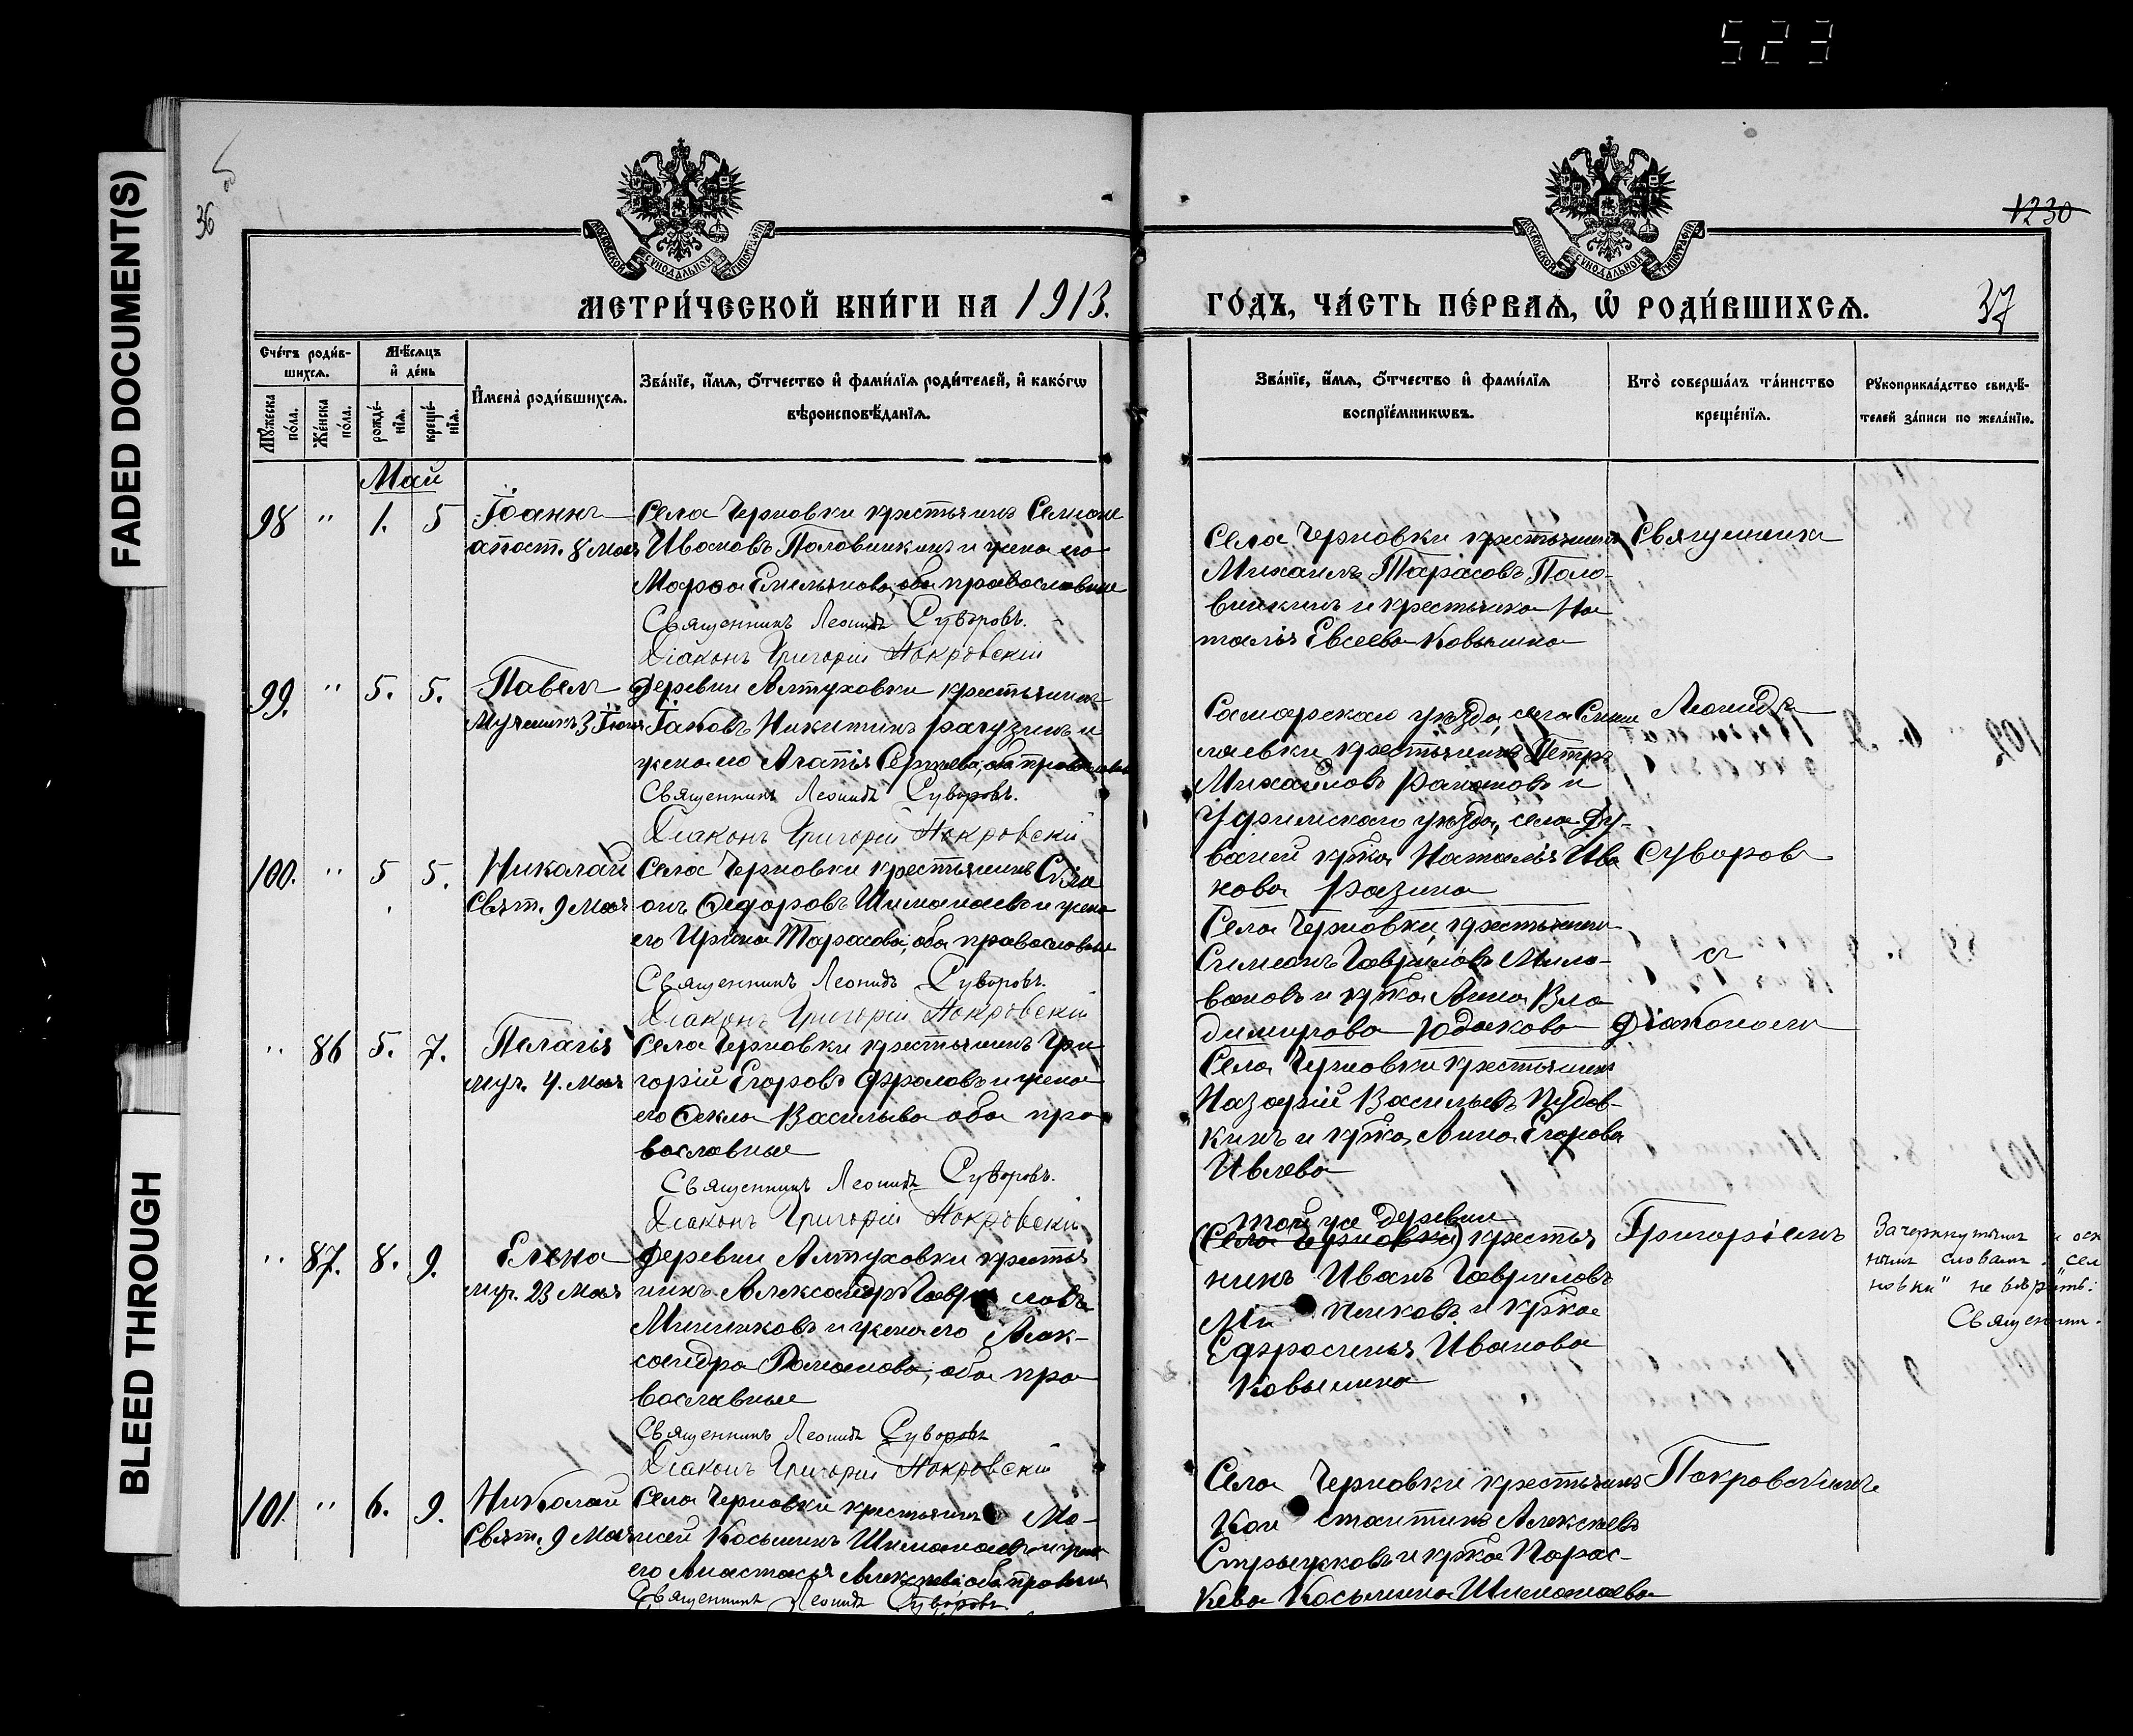 523
FADED DOCUMENT(S)
BLEED THROUGH
36 об
1230
37
МОСКОВСКОЙ СУНОДАЛЬНОЙ ТИПОГРАФІИ
МОСКОВСКОЙ СУНОДАЛЬНОЙ ТИПОГРАФІИ
МЕТРИ́ЧЕСКОЙ КНИ́ГИ НА 1913.
ГО́ДЪ, ЧА́СТЬ ПЕ́РВАѦ, Ѡ҆ РОДИ́ВШИХСѦ.
Сче́тъ роди́в-
шихсѧ.
Мѣ́сѧцъ
и҆ де́нь
Мꙋ́жеска по́ла.
Же́нска по́ла.
рожде́-
нїѧ.
креще́-
нїѧ.
И҆мена̀ роди́вшихсѧ.
Зва́нїе, и҆́мѧ, ѻ҆́тчество и҆ фами́лїѧ роди́телей, и҆ како́гѡ
вѣроисповѣ́данїѧ.
Зва́нїе, и҆́мѧ, ѻ҆́тчество и҆ фами́лїѧ
воспрїе́мникѡвъ.
Кто̀ соверша́лъ та́инство
креще́нїѧ.
Рꙋкоприкла́дство свидѣ́-
телей за́писи по жела́нїю.
Май
98 " 1. 5 Іоаннъ Села Черновки крестьянинъ Семионъ
апост. 8 мая Ивановъ Половинкинъ и жена его
Марѳа Емельянова, оба православные
Священникъ Леонидъ Суворовъ.
Діаконъ Григорій Покровскій
Села Черновки крестьянинъ
Михаилъ Тарасовъ Поло-
винкинъ и крестьянка На
талія Евсеева Ковылина
Священникъ
99. " 5. 5. Павелъ Деревни Алтуховки крестьянинъ
Мученикъ 3 Іюня Іаковъ Никитинъ Рагузинъ и
жена его Агапія Сергіева, оба православные
Священникъ Леонидъ Суворовъ.
Діаконъ Григорій Покровскій
Самарскаго уѣзда, села
лаевки крестьянинъ Петръ
Михайловъ и
Уфимскаго уѣзда, села Ду-
ваней кр҃ка Наталія Ива
нова Разина
Леонидъ
Суворовъ
100. " 5 5. Николай Села Черновки крестьянинъ Симе
Свят. 9 Мая онъ Ѳедоровъ Шиманаевъ и жена
его Ирина Тарасова, оба православные
Священникъ Леонидъ Суворовъ.
Діаконъ Григорій Покровскій
Села Черновки, крестьянинъ
Симеонъ Гавриловъ Мило-
вановъ и кр҃ка Анна Вла
димирова Юдакова
съ
Діакономъ
" 86 5. 7. Пелагія Села Черновки крестьянинъ Гри
муч. 4. Мая горій Егоровъ Фроловъ и жена
его Ѳекла Васильева оба пра
вославные
Священникъ Леонидъ Суворовъ.
Діаконъ Григорій Покровскій
Села Черновки крестьянинъ
Назарій Васильевъ Пудов-
кинъ и кр҃ка Анна Егорова
Ивлева
" 87. 8. 9. Елена Деревни Алтуховки крестья
муч. 23 Мая нинъ Александръ Гаври ловъ
Мишинковъ и жена его Алек-
сандра Романова, оба пра
вославные
Священникъ Леонидъ Суворовъ
Діаконъ Григорій Покровскій
той же деревни
(Села Черновки) крестья
нинъ Иванъ Гавриловъ
Ми шинковъ и кр҃ка
Ефросинья Иванова
Ковылина
Григоріемъ
Зачеркнутымъ и оск
нымъ словамъ "сел
новки" не вѣрить:
Священник
101. " 6. 9. Николай Села Черновки крестьянинъ Мо-
Свят. 9 Мая исей Косьминъ Шиманаевъ и жена
его Анастасія Алексѣева, оба правосл
Священникъ Леонидъ Суворовъ
Села Черновки крестьянинъ
Кон стантинъ Алексѣевъ
Стрыжковъ и кр҃ка Парас-
кева Косьмина Шиманаева
Покровскимъ